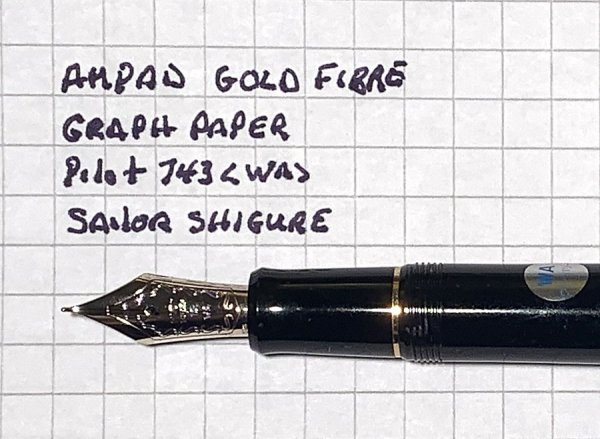 AMPAD GOLD FIBRE
GRAPH PAPER
Pilot 743 <WA>
SAILOR SHIGURE
WA